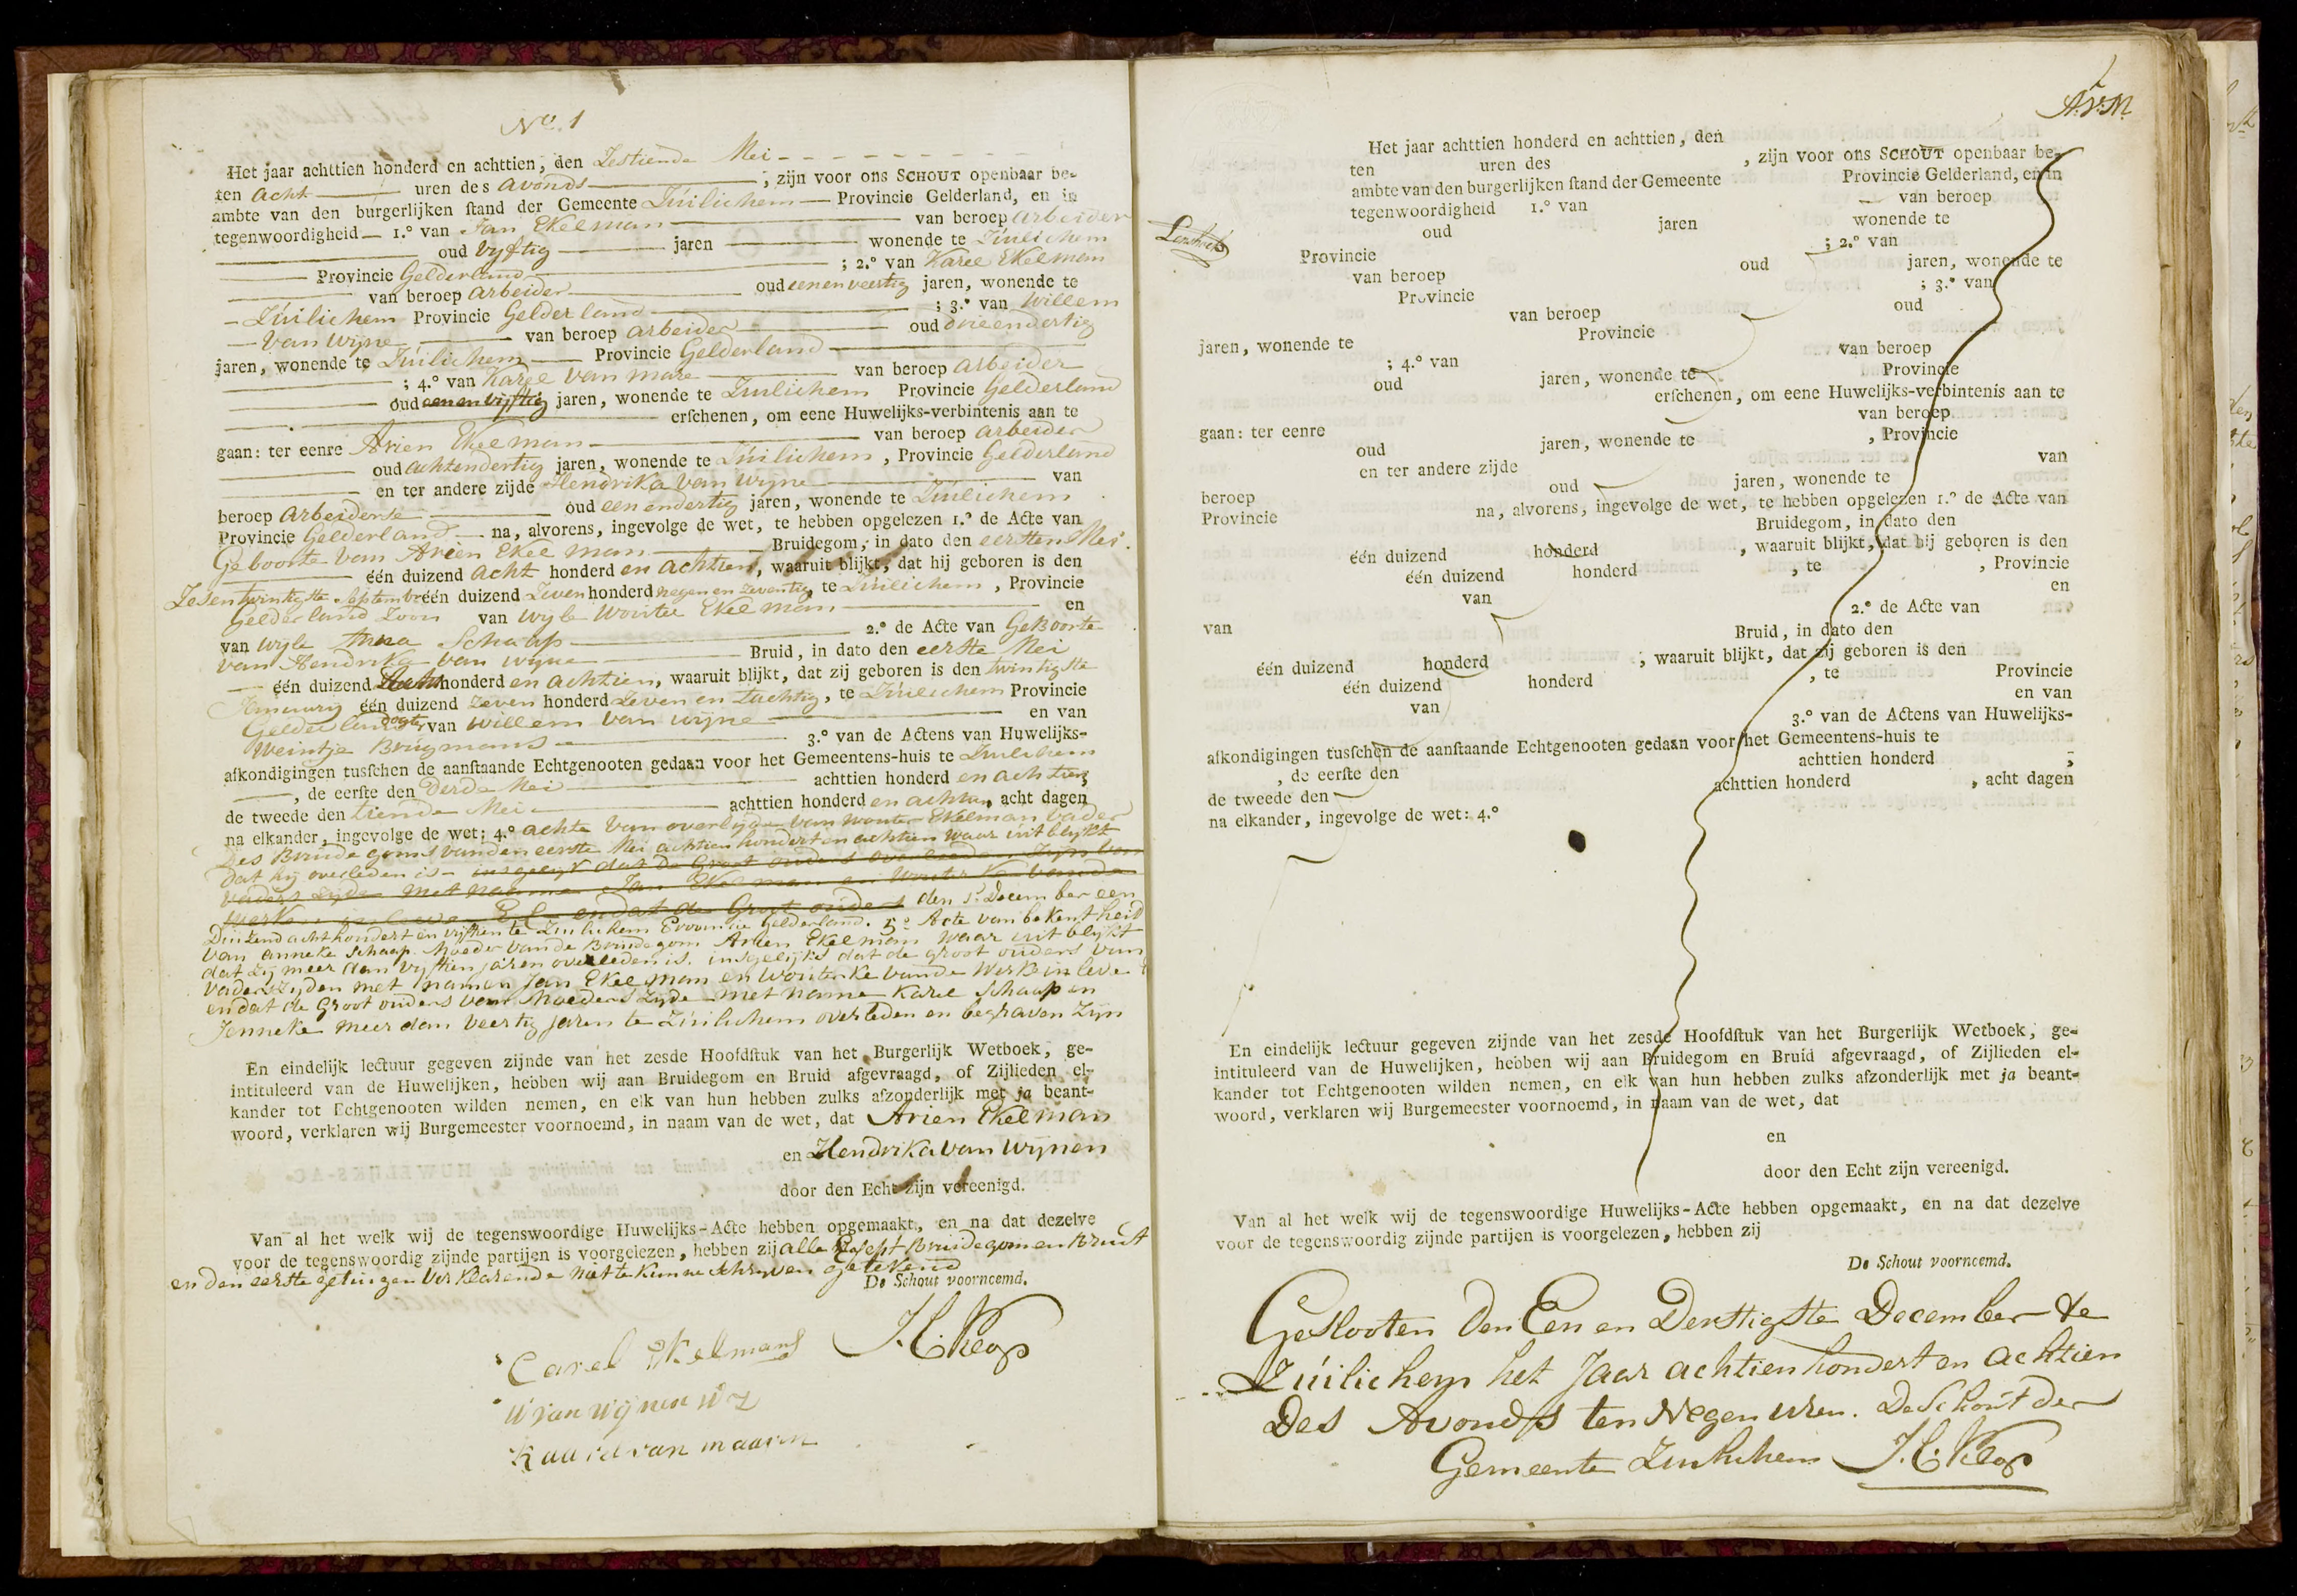 No. 1
Het jaar achttien honderd en achttien, den Zestiende Mei
ten acht uren des avonds, zijn voor ons SCHOUT openbaar be-
ambte van den burgerlijken ſtand der Gemeente Zúilichem Provincie Gelderland, en in
tegenwoordigheid 1.º van Jan Ekelman van beroep arbeider
oud vyftig jaren wonende te Zúilichem
Provincie Gelderland; 2.º van Karel Ekelman
van beroep arbeider oud eenenveertig jaren, wonende te
Zúilichem Provincie Gelderland; 3.º van Willem
van Wijne van beroep arbeider oud drieendertig
jaren, wonende te Zúilichem Provincie Gelderland
; 4.º van Karel van Mare van beroep arbeider
oud eenenvijftig jaren, wonende te Zuilichem Provincie Gelderland
erſchenen, om eene Huwelijks-verbintenis aan te
gaan: ter eenre Arien Ekelman van beroep arbeider
oud achtendertig jaren, wonende te Zúilichem, Provincie Gelderland
en ter andere zijde Hendrika van Wijne van
beroep Arbeiderse oud eenendertig jaren, wonende te Zúilichem
Provincie Gelderland na, alvorens, ingevolge de wet, te hebben opgelezen 1.º de Acte van
Geboorte van Arien Ekelman Bruidegom, in dato den eersten Mei
één duizend acht honderd en achtien, waaruit blijkt, dat hij geboren is den
Zesentwintigste September één duizend Zeven honderd negenenzeventig, te Zuilichem, Provincie
Gelderland Zoon van wyle Wouter Ekelman en
van wyle Anna Schaap 2.º de Acte van Geboorte
van Hendrika van Wijne Bruid, in dato den eerste Mei
één duizend acht honderd en achtien, waaruit blijkt, dat zij geboren is den twintigste
Januarij één duizend zeven honderd Zeven en tachtig, te Zúilichem Provincie
Gelderland dogter van Willem van Wijne en van
Weintje Brugmans 3.º van de Actens van Huwelijks-
afkondigingen tusſchen de aanſtaande Echtgenooten gedaan voor het Gemeentens-huis te Zuilichem
, de eerſte den Derde Mei achttien honderd en achtien;
de tweede den tiende Mei achttien honderd en achtien, acht dagen
na elkander, ingevolge de wet; 4.º achte van overlijde van Wouter Ekelman vader
Des Bruidegoms van den eerste Mei achtien hondert en achtien waar uit blijkt
dat hij overleden is insgelijk dat de Groot ouders overleden zijn van
vaders zijde met naame Jan Ekelman en Wouterke van de
Werke en dat de Groot ouders den 1e December een
Duizend acht hondert en vijftien te Zuilichem Provintie Gelderland. 5º Acte van bekentheid
van anneke Schaap Moeder van de Bruidegom Arien Ekelman waar uit blijkt
dat zij meer dan vijftien jaren overleden is. insgelijks dat de groot ouders van
vaders zyden met namen Jan Ekelman en Wouterke van de Werk in leve
en dat de Groot ouders van Moeders zijde met name Karel Schaap en
Jenneke meer dan veertig jaren te Zúilichem overleden en begraven zijn
En eindelijk lectuur gegeven zijnde van het zesde Hoofdſtuk van het Burgerlijk Wetboek, ge-
intituleerd van de Huwelijken, hebben wij aan Bruidegom en Bruid afgevraagd, of Zijlieden el-
kander tot Echtgenooten wilden nemen, en elk van hun hebben zulks afzonderlijk met ja beant-
woord, verklaren wij Burgemeester voornoemd, in naam van de wet, dat Arien Ekelman
en Hendrika van Wijnen
door den Echt zijn vereenigd.
Van al het welk wij de tegenswoordige Huwelijks-Acte hebben opgemaakt, en na dat dezelve
voor de tegenswoordig zijnde partijen is voorgelezen, hebben zij alle Exsept Bruidegom en Bruit
en den eerste getuigen verklarende niet te kunne schryven getekend
De Schout voornoemd.
Carel Ekelmans J.C. Klop
W van Wijnen WZ
Kaarel van maaren
Het jaar achttien honderd en achttien, den
ten uren des, zijn voor ons SCHOUT openbaar be-
ambte van den burgerlijken ſtand der Gemeente Provincie Gelderland, en in
tegenwoordigheid 1.º van van beroep
oud jaren wonende te
Provincie; 2.º van
van beroep oud jaren, wonende te
Provincie; 3.º van
van beroep oud
jaren, wonende te Provincie
; 4.º van van beroep
oud jaren, wonende te Provincie
erſchenen, om eene Huwelijks-verbintenis aan te
gaan: ter eenre van beroep
oud jaren, wonende te, Provincie
en ter andere zijde van
beroep oud jaren, wonende te
Provincie na, alvorens, ingevolge de wet, te hebben opgelezen 1.º de Acte van
Bruidegom, in dato den
één duizend honderd, waaruit blijkt, dat hij geboren is den
één duizend honderd, te, Provincie
van en
van 2.º de Acte van
Bruid, in dato den
één duizend honderd, waaruit blijkt, dat zij geboren is den
één duizend honderd, te Provincie
van en van
3.º van de Actens van Huwelijks-
afkondigingen tusſchen de aanſtaande Echtgenooten gedaan voor het Gemeentens-huis te
, de eerſte den achttien honderd;
de tweede den achttien honderd, acht dagen
na elkander, ingevolge de wet: 4.º
En eindelijk lectuur gegeven zijnde van het zesde Hoofdſtuk van het Burgerlijk Wetboek, ge-
intituleerd van de Huwelijken, hebben wij aan Bruidegom en Bruid afgevraagd, of Zijlieden el-
kander tot Echtgenooten wilden nemen, en elk van hun hebben zulks afzonderlijk met ja beant-
woord, verklaren wij Burgemeester voornoemd, in naam van de wet, dat
en
door den Echt zijn vereenigd.
Van al het welk wij de tegenswoordige Huwelijks-Acte hebben opgemaakt, en na dat dezelve
voor de tegenswoordig zijnde partijen is voorgelezen, hebben zij
De Schout voornoemd.
Geslooten Den Een en Derttigste December te
Zúilichem het Jaar achtien hondert en achtien
Des Avonds ten Negen uren. De Schout der
Gemeente Zuilichem J.C. Klop